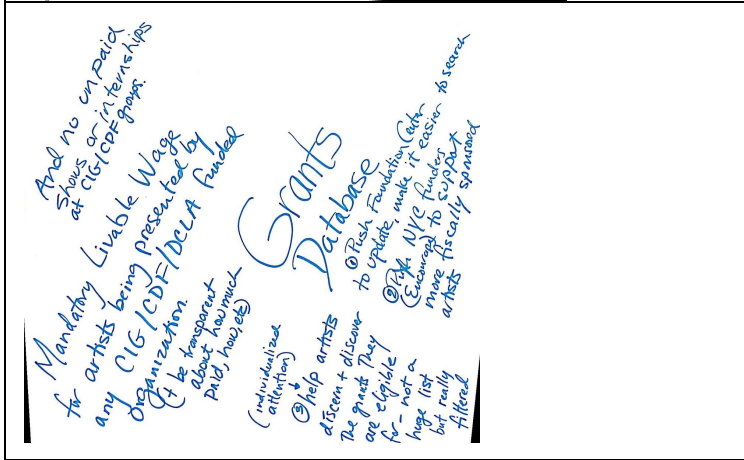 And no unpaid
shows or internships
at CIG/CDF groups.
Mandatory Livable Wage
for artists being presented by
any CIG/CDF/DCLA funded
organization.
(+ be transparent
about how much
paid, how, etc)
Grants
Database
① Push Foundation Center
to update, make it easier to search
② Push NYC funders
(Encourage) to support
more fiscally sponsored
artists
(individualized
attention)
③ help artists
discern + discover
the grants they
are eligible
for - not a
huge list
but really
filtered